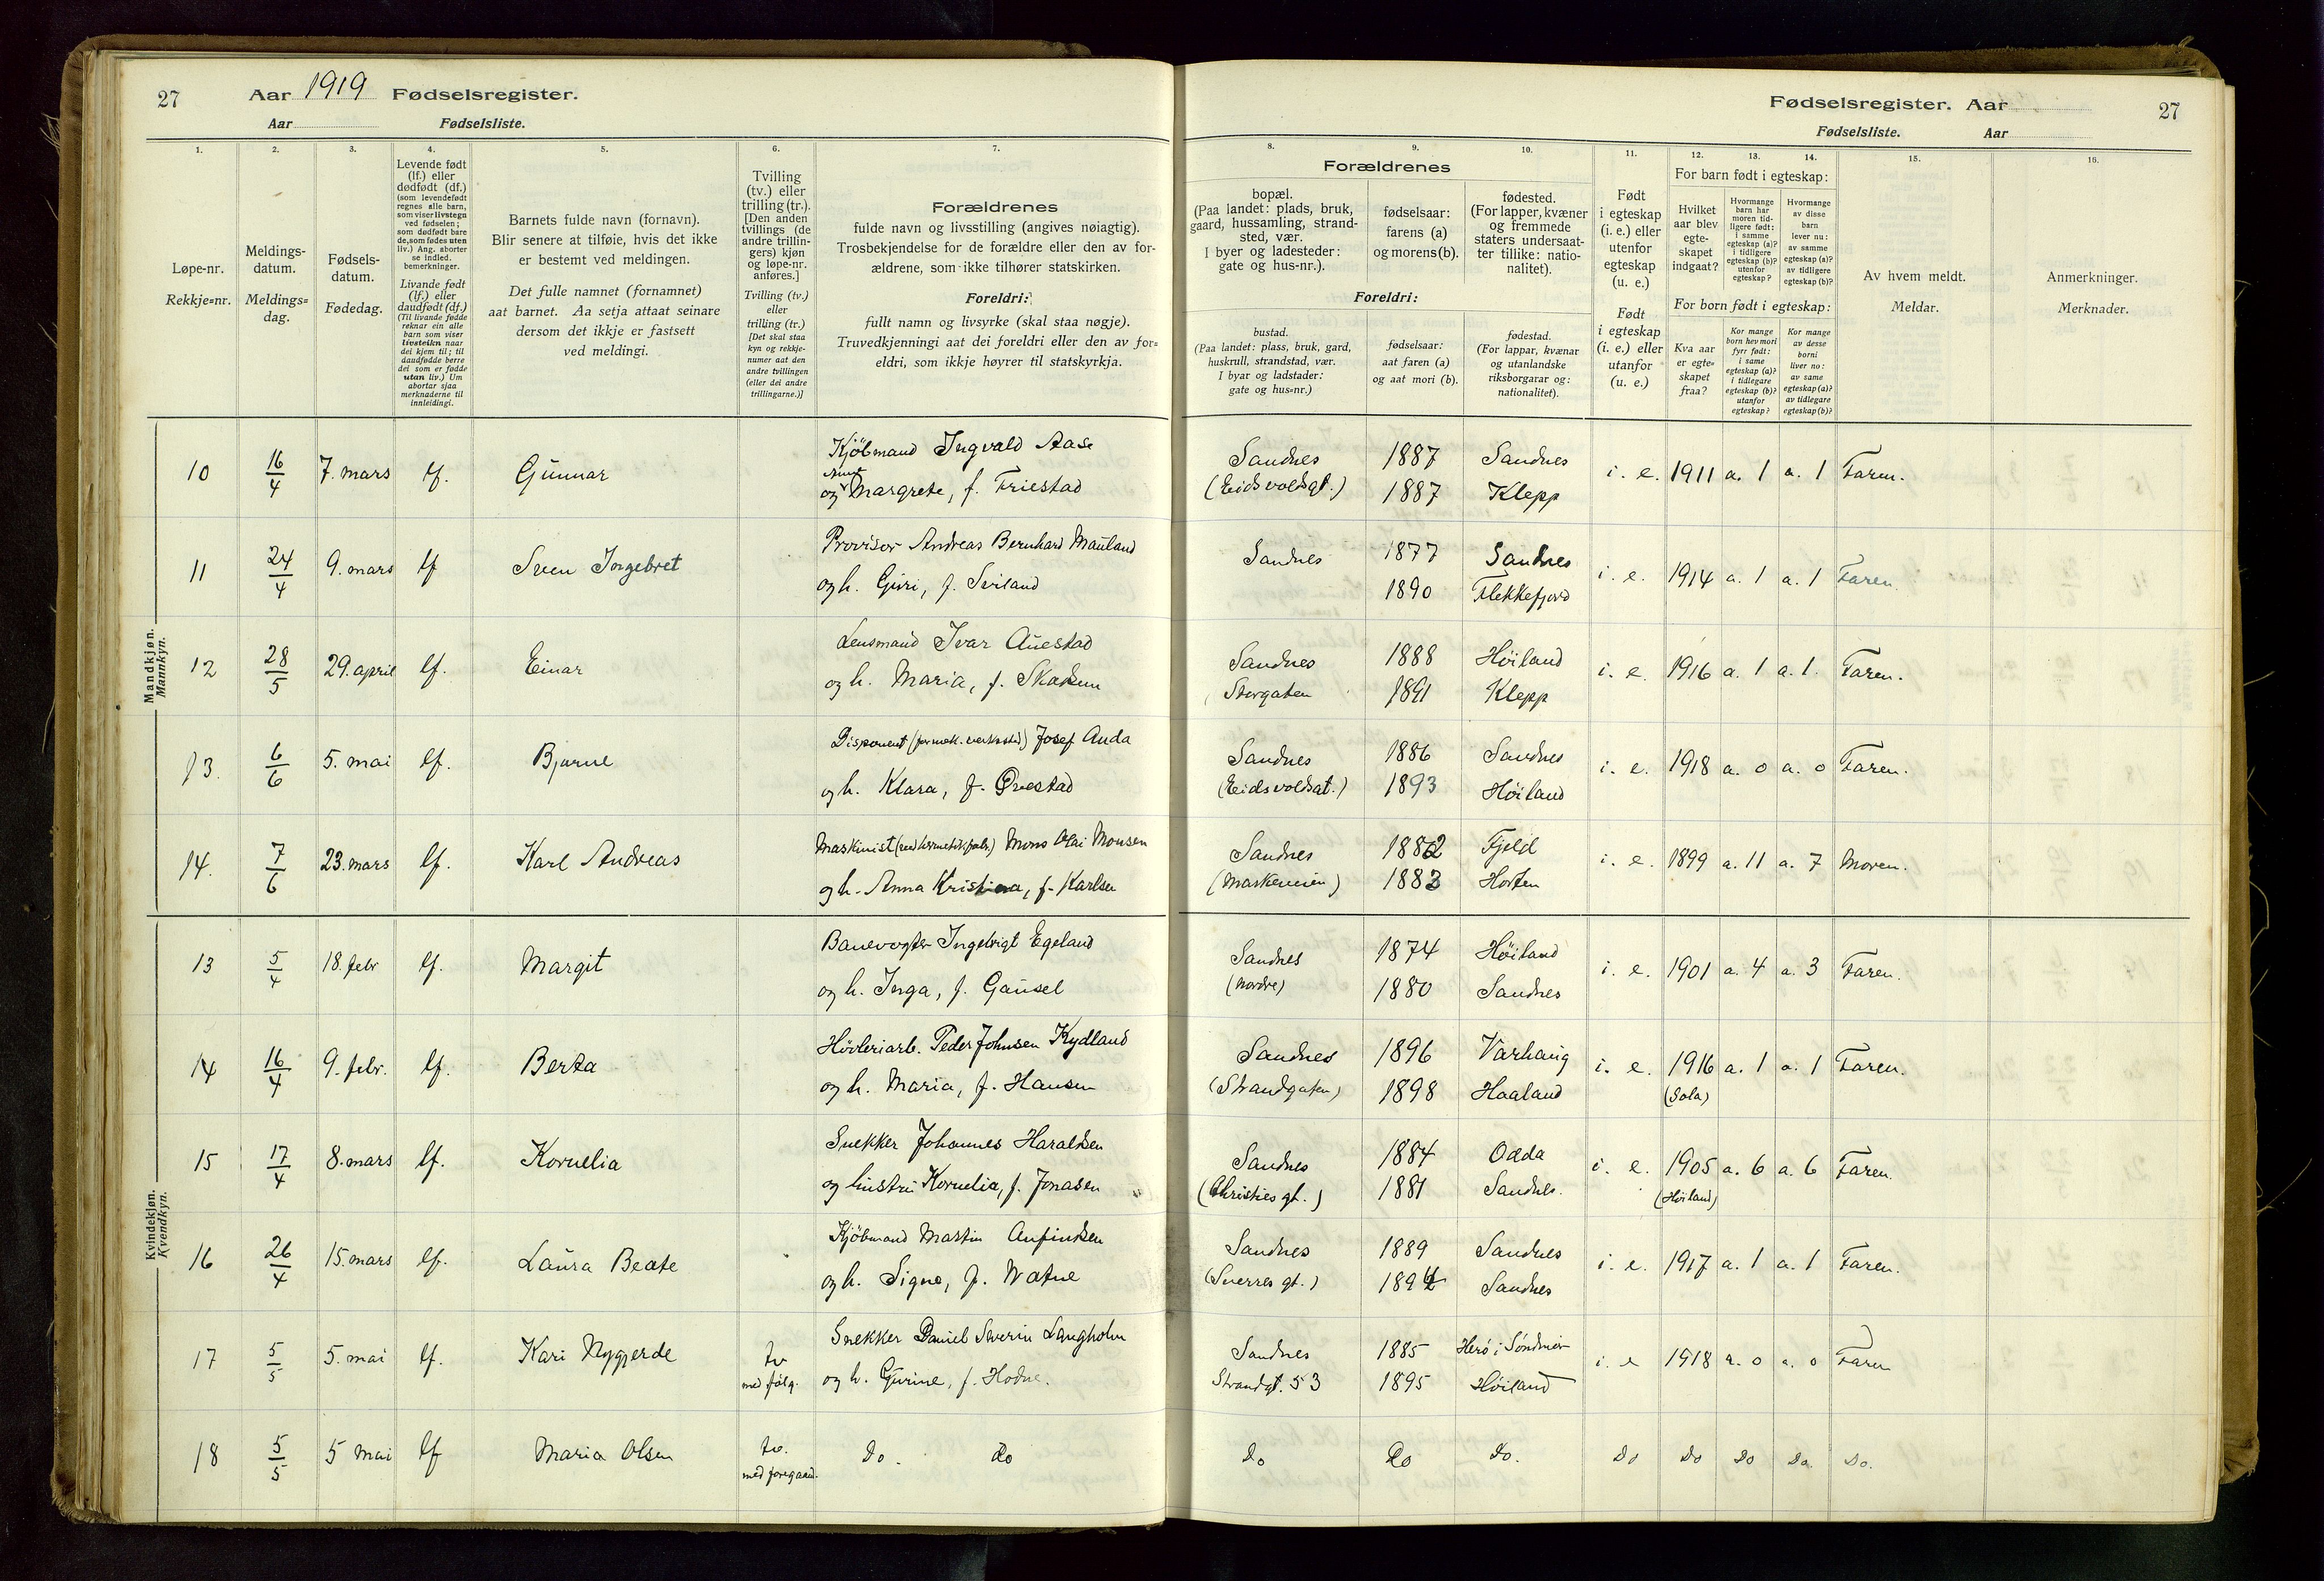 27
Aar 1919 Fødselsregister.
Aar Fødselsliste.
1.
2.
3.
4.
5.
6.
7.
Løpe-nr.
Rekkje-nr.
Meldings-
datum.
Meldings-
dag.
Fødsels-
datum.
Fødedag.
Levende født
(lf.) eller
dødfødt (df.)
(som levendefødt
regnes alle barn,
som viser livstegn
ved fødselen;
som dødfødt bare
de, som fødes uten
liv.) Ang. aborter
se indled.
bemerkninger.
Livande født
(lf.) eller
daudfødt (df.)
(Til livande fødde
reknar ein alle
barn som viser
livsteikn naar
dei kjem til; til
daudfødde berre
dei som er fødde
utan liv.) Um
abortar sjaa
merknaderne til
innleidingi.
Barnets fulde navn (fornavn).
Blir senere at tilføie, hvis det ikke
er bestemt ved meldingen.
Det fulle namnet (fornamnet)
aat barnet. Aa setja attaat seinare
dersom det ikkje er fastsett
ved meldingi.
Tvilling
(tv.) eller
trilling (tr.).
[Den anden
tvillings (de
andre trillin-
gers) kjøn
og løpe-nr.
anføres.]
Tvilling (tv.)
eller
trilling (tr.)
[Det skal staa
kyn og rekkje-
numer aat den
andre tvillingen
(eller dei andre
trillingarne.)]
Forældrenes
fulde navn og livsstilling (angives nøiagtig).
Trosbekjendelse for de forældre eller den av for-
ældrene, som ikke tilhører statskirken.
Foreldri:
fullt namn og livsyrke (skal staa nøgje).
Truvedkjenningi aat dei foreldri eller den av for-
eldri, som ikkje høyrer til statskyrkja.
Fødselsregister. Aar
27
Fødselsliste. Aar
8.
9.
10.
11.
12.
13.
14.
15.
16.
Forældrenes
bopæl.
(Paa landet: plads, bruk,
gaard, hussamling, strand-
sted, vær.
I byer og ladesteder:
gate og hus-nr.).
fødselsaar:
farens (a)
og morens (b).
fødested.
(For lapper, kvæner
og fremmede
staters undersaat-
ter tillike: natio-
nalitet).
Foreldri:
bustad.
(Paa landet: plass, bruk, gard,
huskrull, strandstad, vær.
I byar og ladstader:
gate og hus-nr.)
fødselsaar:
aat faren (a)
og aat mori (b).
fødestad.
(For lappar, kvænar
og utanlandske
riksborgarar og:
nationalitet).
Født
i egteskap
(i. e.) eller
utenfor
egteskap
(u. e.)
Født
i egteskap
(i. e.) eller
utanfor
(u. e.)
For barn født i egteskap:
Hvilket
aar blev
egte-
skapet
indgaat?
Hvormange
barn har
moren tid-
ligere født:
i samme
egteskap (a)?
i tidligere
egteskap (b)?
utenfor
egteskap?
Hvormange
av disse
barn
lever nu:
av samme
egteskap (a)?
av tidligere
egteskap (b)?
For born født i egteskap:
Kva aar
er egte-
skapet
fraa?
Kor mange
born hev mori
fyrr født:
i same
egteskap (a)?
i tidlegare
egteskap (b)?
utanfor
egteskap?
Kor mange
av desse
borni
liver no:
av same
egteskap (a)?
av tidlegare
egteskap (b)?
Av hvem meldt.
Meldar.
Anmerkninger.
Merknader.
Mandkjøn.
Mannkyn.
10 16/4 7. mars lf. Gunnar Kjöbmand Ingvald Aase Sandnes 1887 Sandnes i. e. 1911 a. 1 a. 1 Faren.
og Margrete, f. Friestad (Eidsvoldsgt.) 1887 Klepp
11 24/4 9. mars lf Sven Ingebret Provisor Andreas Bernhard Mauland Sandnes 1877 Sandnes i. e. 1914 a. 1 a. 1 Faren
og h. Guri, f. Sviland 1890 Flekkefjord
12 28/5 29. april lf. Einar Lensmand Ivar Auestad Sandnes 1888 Höiland i. e. 1916 a. 1 a. 1. Faren.
og h. Maria, f. Storgaten 1891 Klepp
13. 6/6 5. mai lf. Bjarne Disponent Josef Auda Sandnes 1886 Sandnes i. e. 1918 a. 0 a. 0 Faren.
og h. Klara, f. 1893 Höiland
14. 7/6 23. mars lf. Karl Andreas Maskinist Mons Olai Monsen Sandnes 1882 Fjeld i. e. 1899 a. 11 a. 7 Moren.
og h. Anna Kristina, f. Karlsen 1883 Horten
Kvindekjøn.
Kvendkyn.
13 5/4 18. febr lf. Margit Banevogter Ingebrigt Egeland Sandnes 1874 Höiland i. e. 1901 a. 4 a. 3 Faren.
og h. Inga, f. Gausel (Nordre) 1880 Sandnes
14 16/4 9. febr. lf. Berta Hövleriarb. Peder Johnsen Kydland Sandnes 1896 Varhaug i. e. 1916 a. 1 a. 1 Faren.
og h. Maria, f. Hansen (Strandgaten) 1898 Haaland (Sola)
15 17/4 8. mars lf. Kornelia Snekker Johannes Haraldsen Sandnes 1884 Odda i. e. 1905 a. 6 a. 6 Faren.
og hustru Kornelia, f. Jonasen (Christies gt.) 1881 Sandnes. (Höiland)
16 26/4 15. mars lf. Laura Beate Kjöbmand Martin Anfindsen Sandnes 1889 Sandnes i. e. 1917 a. 1 a. 1 Faren.
og h. Signe, f. Watne (Sverres gt.) Sandnes
17 5/5 5. mai lf. Kari Nygjerde tv Snekker Daniel Severin Langholm Sandnes 1885 Herö i Söndmör i. e 1918 a. 0 a. 0 Faren
med følg. og h. Gurine, f. Hodne. Strandgt. 53 1895 Höiland
18 5/5 5 mai lf Maria Olsen tv. Do. Do Do Do Do. Do Do Do Do. Do.
med foregaand.